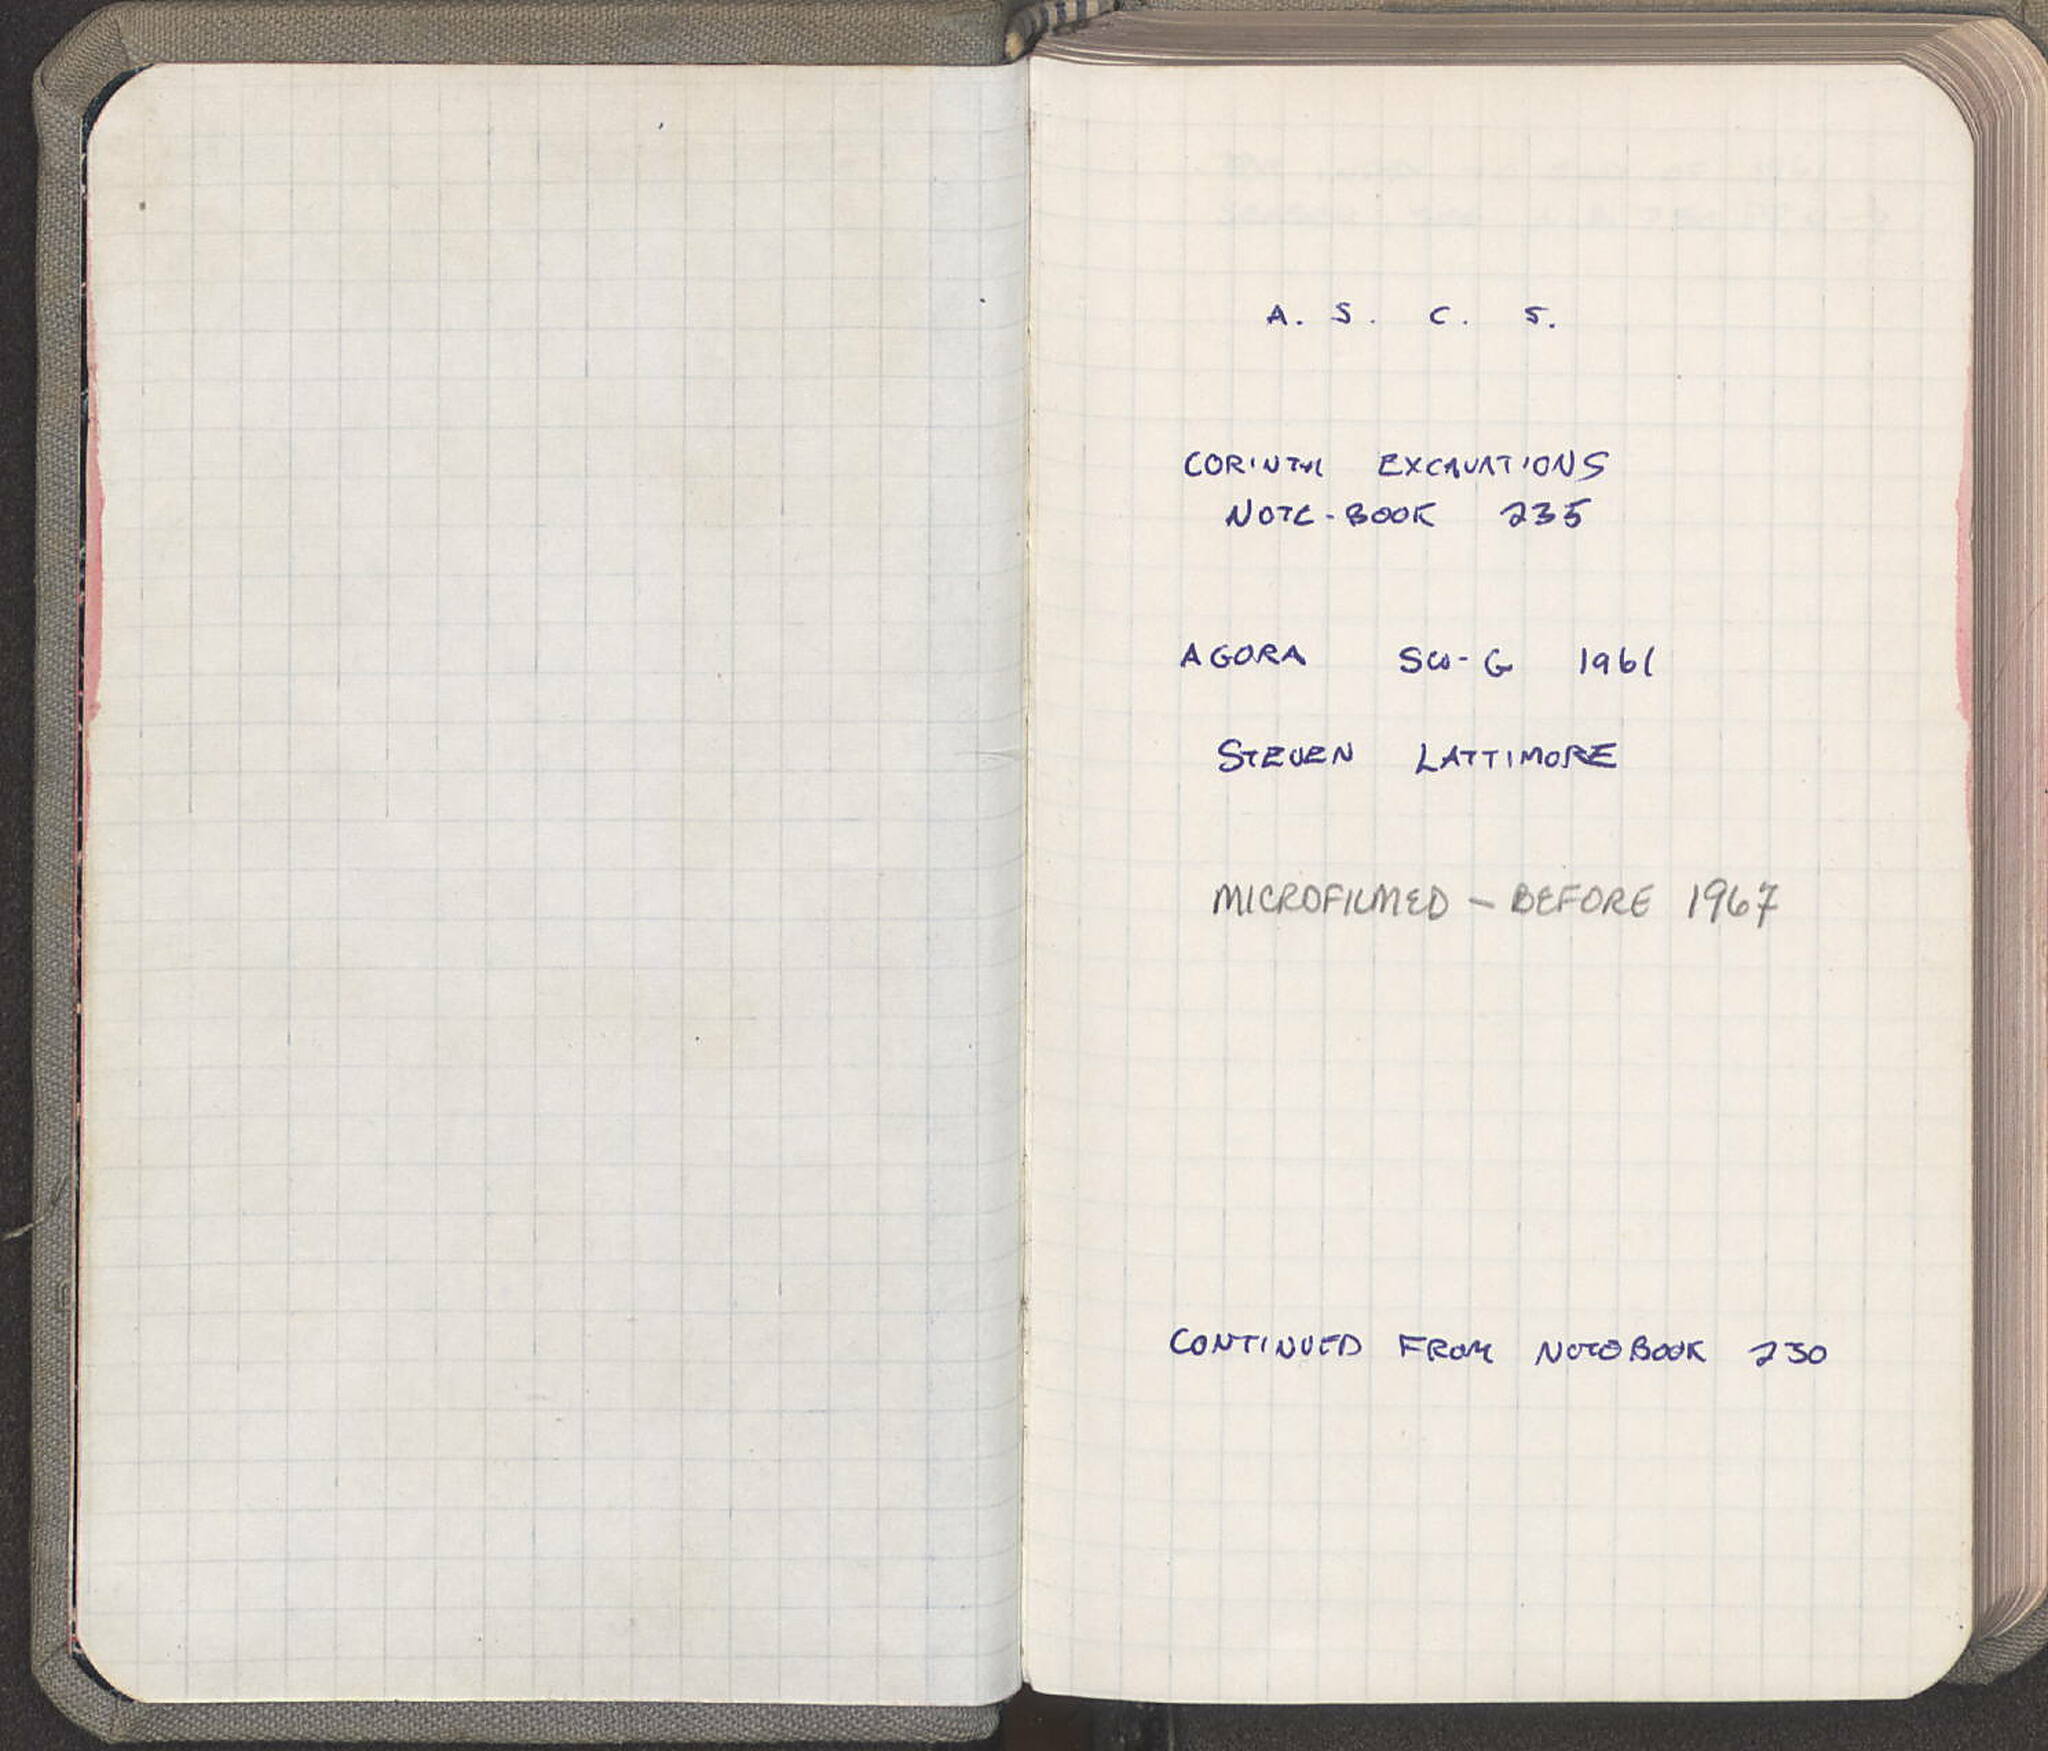 A. S. C. S.
CORINTH EXCAVATIONS
NOTE-BOOK 235
AGORA SW-G 1961
STEVEN LATTIMORE
MICROFILMED - BEFORE 1967
CONTINUED FROM NOTEBOOK 230